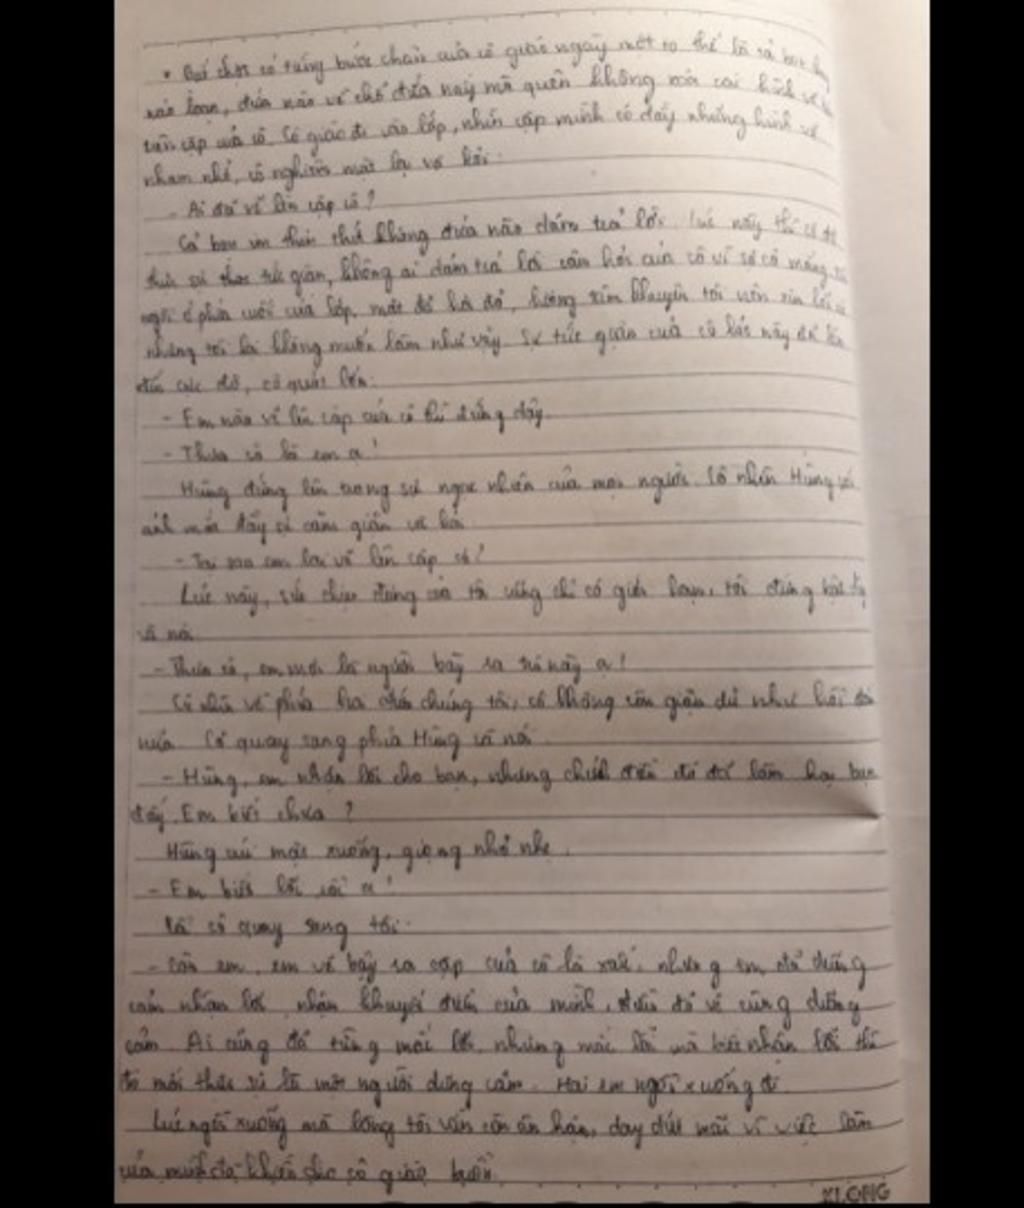 Bất chợt có tiếng bước chân của cô giáo ngày một to thế là cả bọn
náo loạn, đứa nào về chỗ đứa nấy mà quên không xóa cái hình vẽ
trên cặp của cô. Cô giáo đi vào lớp, nhìn cặp mình có đầy những hình vẽ
nham nhở, cô nghiêm mặt lại và hỏi:
- Ai đã vẽ lên cặp cô?
Cả bọn im thin thít không đứa nào dám trả lời. Lúc này thì cô đã
thực sự tức giận, không ai dám trả lời câu hỏi của cô vì sợ cô mắng,
ngồi ở phía cuối của lớp, mặt đỏ bừng, khuyên tôi nên xin lỗi cô
nhưng tôi lại không muốn làm như vậy. Sự tức giận của cô lúc này đã lên
đến cực độ, cô quát lớn:
- Em nào vẽ lên cặp của cô thì đứng dậy.
- Thưa cô là em ạ!
Hùng đứng lên trong sự ngạc nhiên của mọi người. Cô nhìn Hùng với
ánh mắt đầy sự căm giận và hỏi
- Tại sao em lại vẽ lên cặp cô?
Lúc này, sức chịu đựng của tôi cũng chỉ có giới hạn, tôi đứng bật dậy
và nói
- Thưa cô, em mới là người bày ra trò này ạ!
Cô nhìn về phía hai đứa chúng tôi, cô không còn giận dữ như hồi đó
nữa. Cô quay sang phía Hùng và nói
- Hùng, em nhận lỗi cho bạn, nhưng chính điều đó đã làm hại bạn
đấy. Em biết chưa?
Hùng cúi mặt xuống, giọng nhỏ nhẹ.
- Em biết lỗi rồi ạ!
Rồi cô quay sang tôi:
- Còn em, em vẽ bậy ra cặp của cô là xấu, nhưng em đã dũng
cảm nhận lỗi nhận khuyết điểm của mình, điều đó vô cùng dũng
cảm. Ai cũng đã từng mắc lỗi, nhưng mắc lỗi mà biết nhận lỗi thì
đó mới thực sự là một người dũng cảm. Hai em ngồi xuống đi
Lúc ngồi xuống mà lòng tôi vẫn còn ân hận, day dứt mãi vì việc làm
của mình đã khiến cho cô giáo buồn.
KLONG